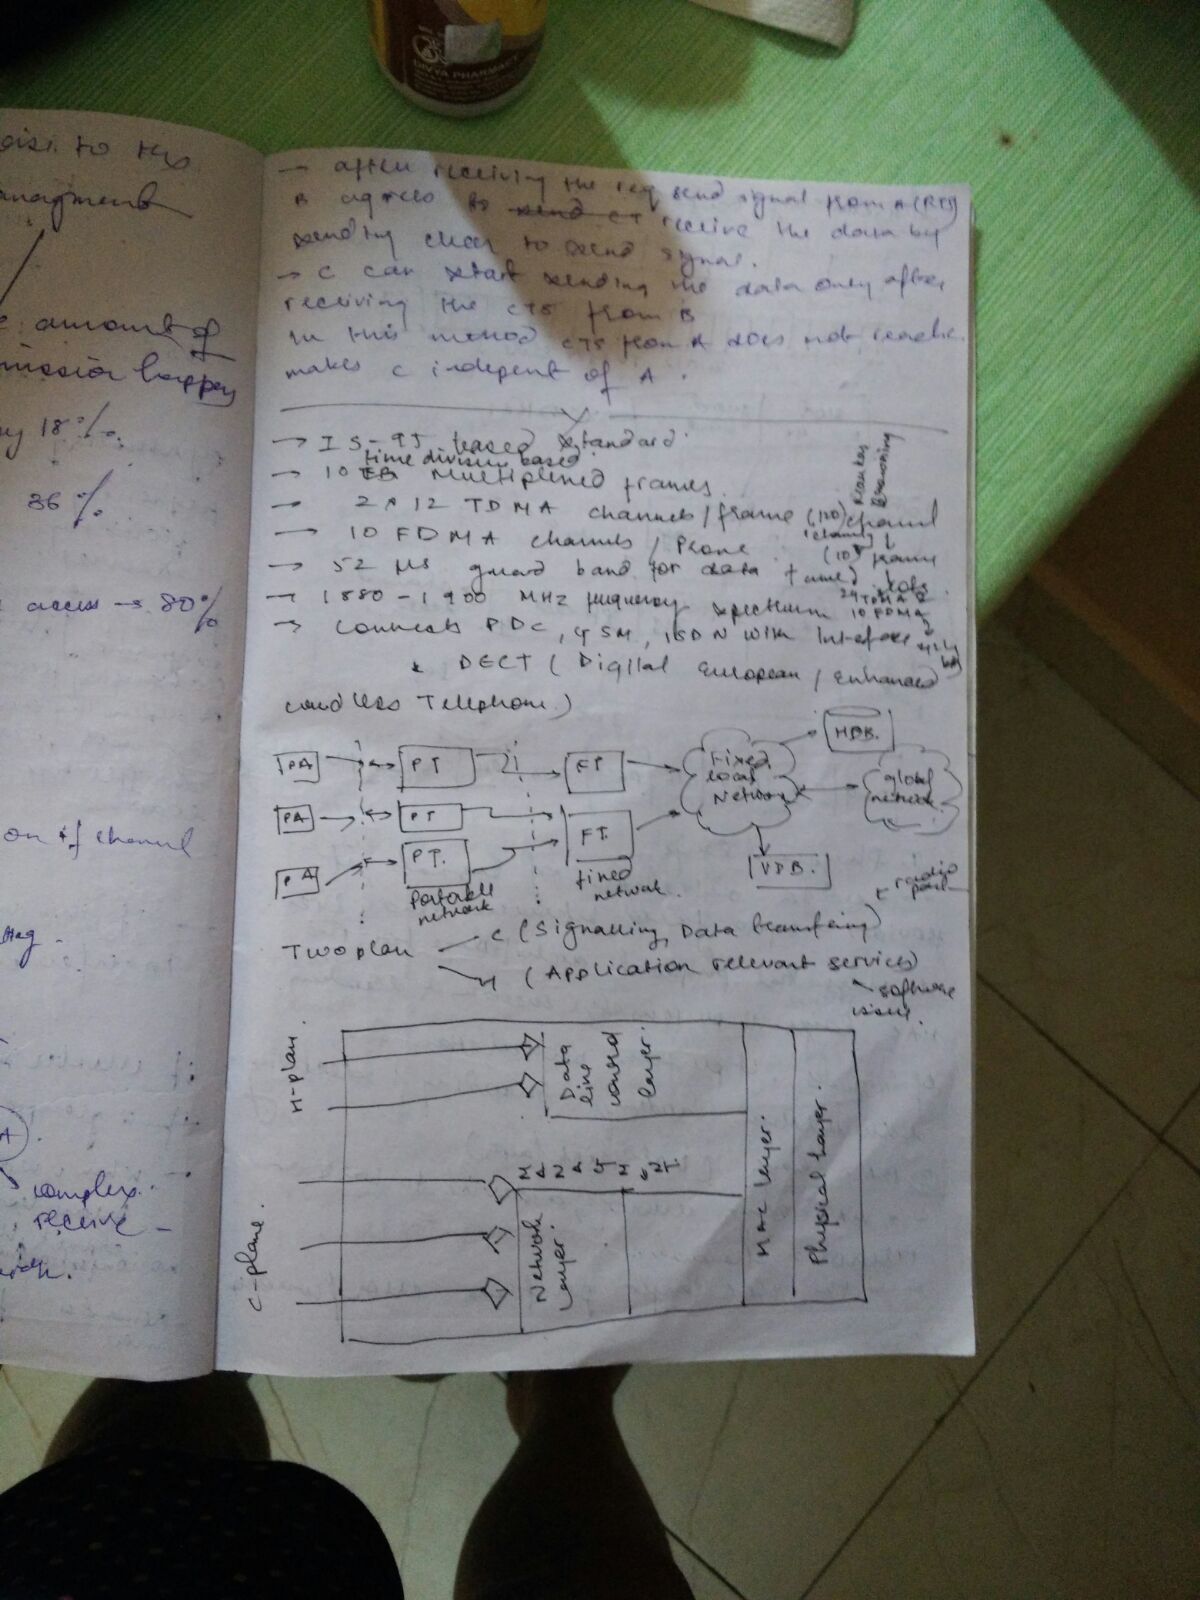 DIVYA PHARMACY
to the
managment
amount of
mission happen
18%.
36%
access → 80%
on of channel
complex
receive -
→ after receiving the req send signal from A (RTS)
B agrees to send CT receive the data by
sending clear to send signal.
→ C can start sending the data only after
receiving the CTS from B
In this method CTS from A does not reach
makes C indepent of A.
→ IS-95 based standard
time division based
→ 10 Multiplexed frames.
→ 2 * 12 TDMA channels / frame (120) channel
→ 10 FDMA channels / Frame
→ 52 µs guard band for data
→ 1880 - 1900 MHz frequency spectrum
24 TDMA
10 FDMA
→ Connects PDC, GSM, ISDN with Interface
* DECT (Digital European / Enhanced
cordless Telephone)
HDB.
PA PT FT Fixed
local
Network
global
network
PA PT FT.
PA PT. VDB.
Portable
network
fixed
network.
radio
part
Two plan C (Signalling, Data transfering)
(Application relevant services)
software
issue.
M-plan.
Data
line
control
layer.
C-plane.
Network
layer.
MAC layer.
Physical layer.